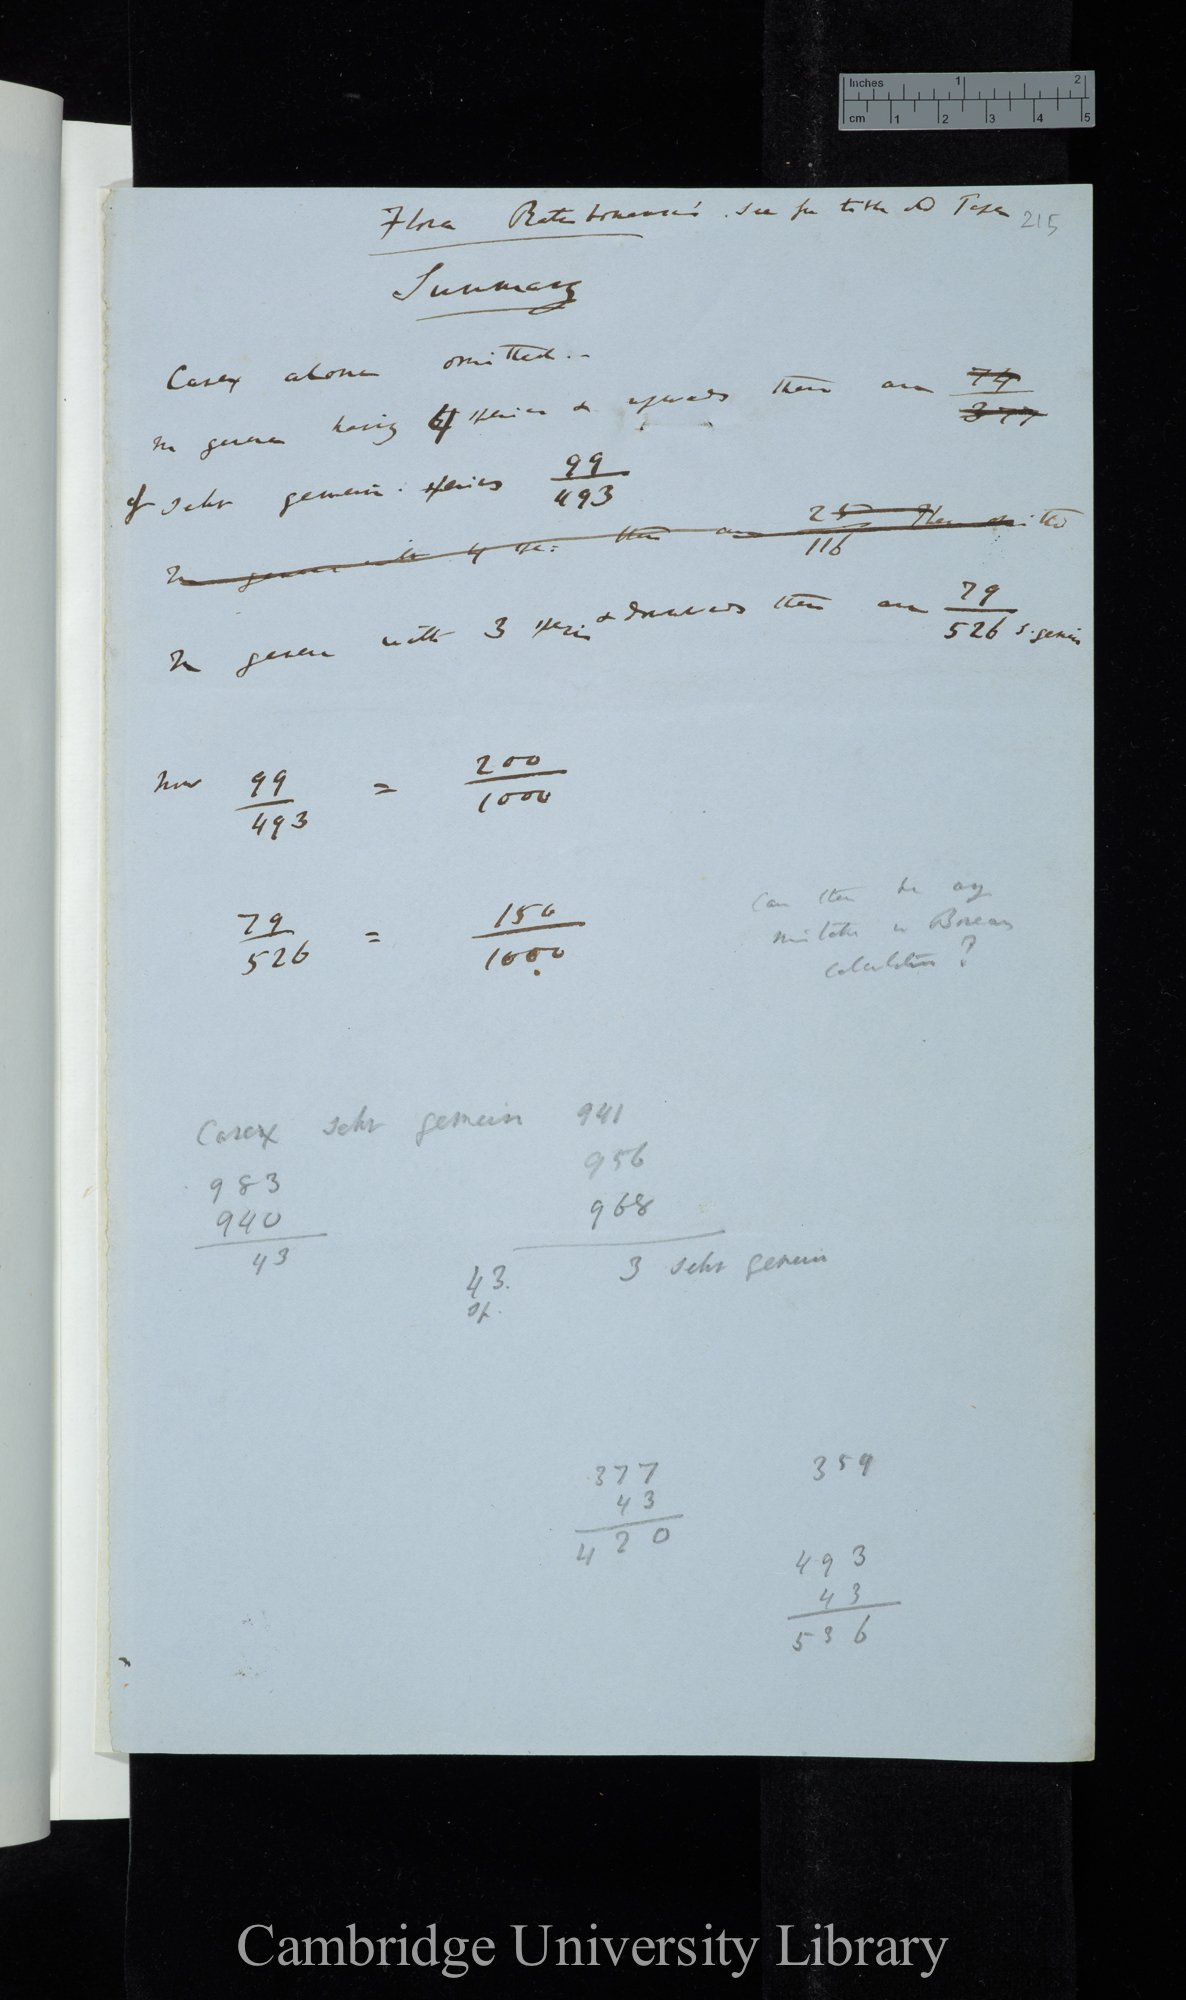 Inches 1 2
cm 1 2 3 4 5
Flora Ratisbonensis. See for title old Paper 215
Summary
Carex alone omitted..
In genera having 4 species & upwards there are 74/377
of sehr gemein. species 99/493
In genera with 4 sp: there are 25/116 then omitted
In genera with 3 species & downwards there are 79/526 s. gemein
Now 99/493 = 200/1000
79/526 = 150/1000
Can there be any
mistake in Boreau
calculation?
Carex sehr gemein 941
983 956
940 968
43 43. 3 sehr gemein
sp.
377 359
43
420 493
43
536
Cambridge University Library